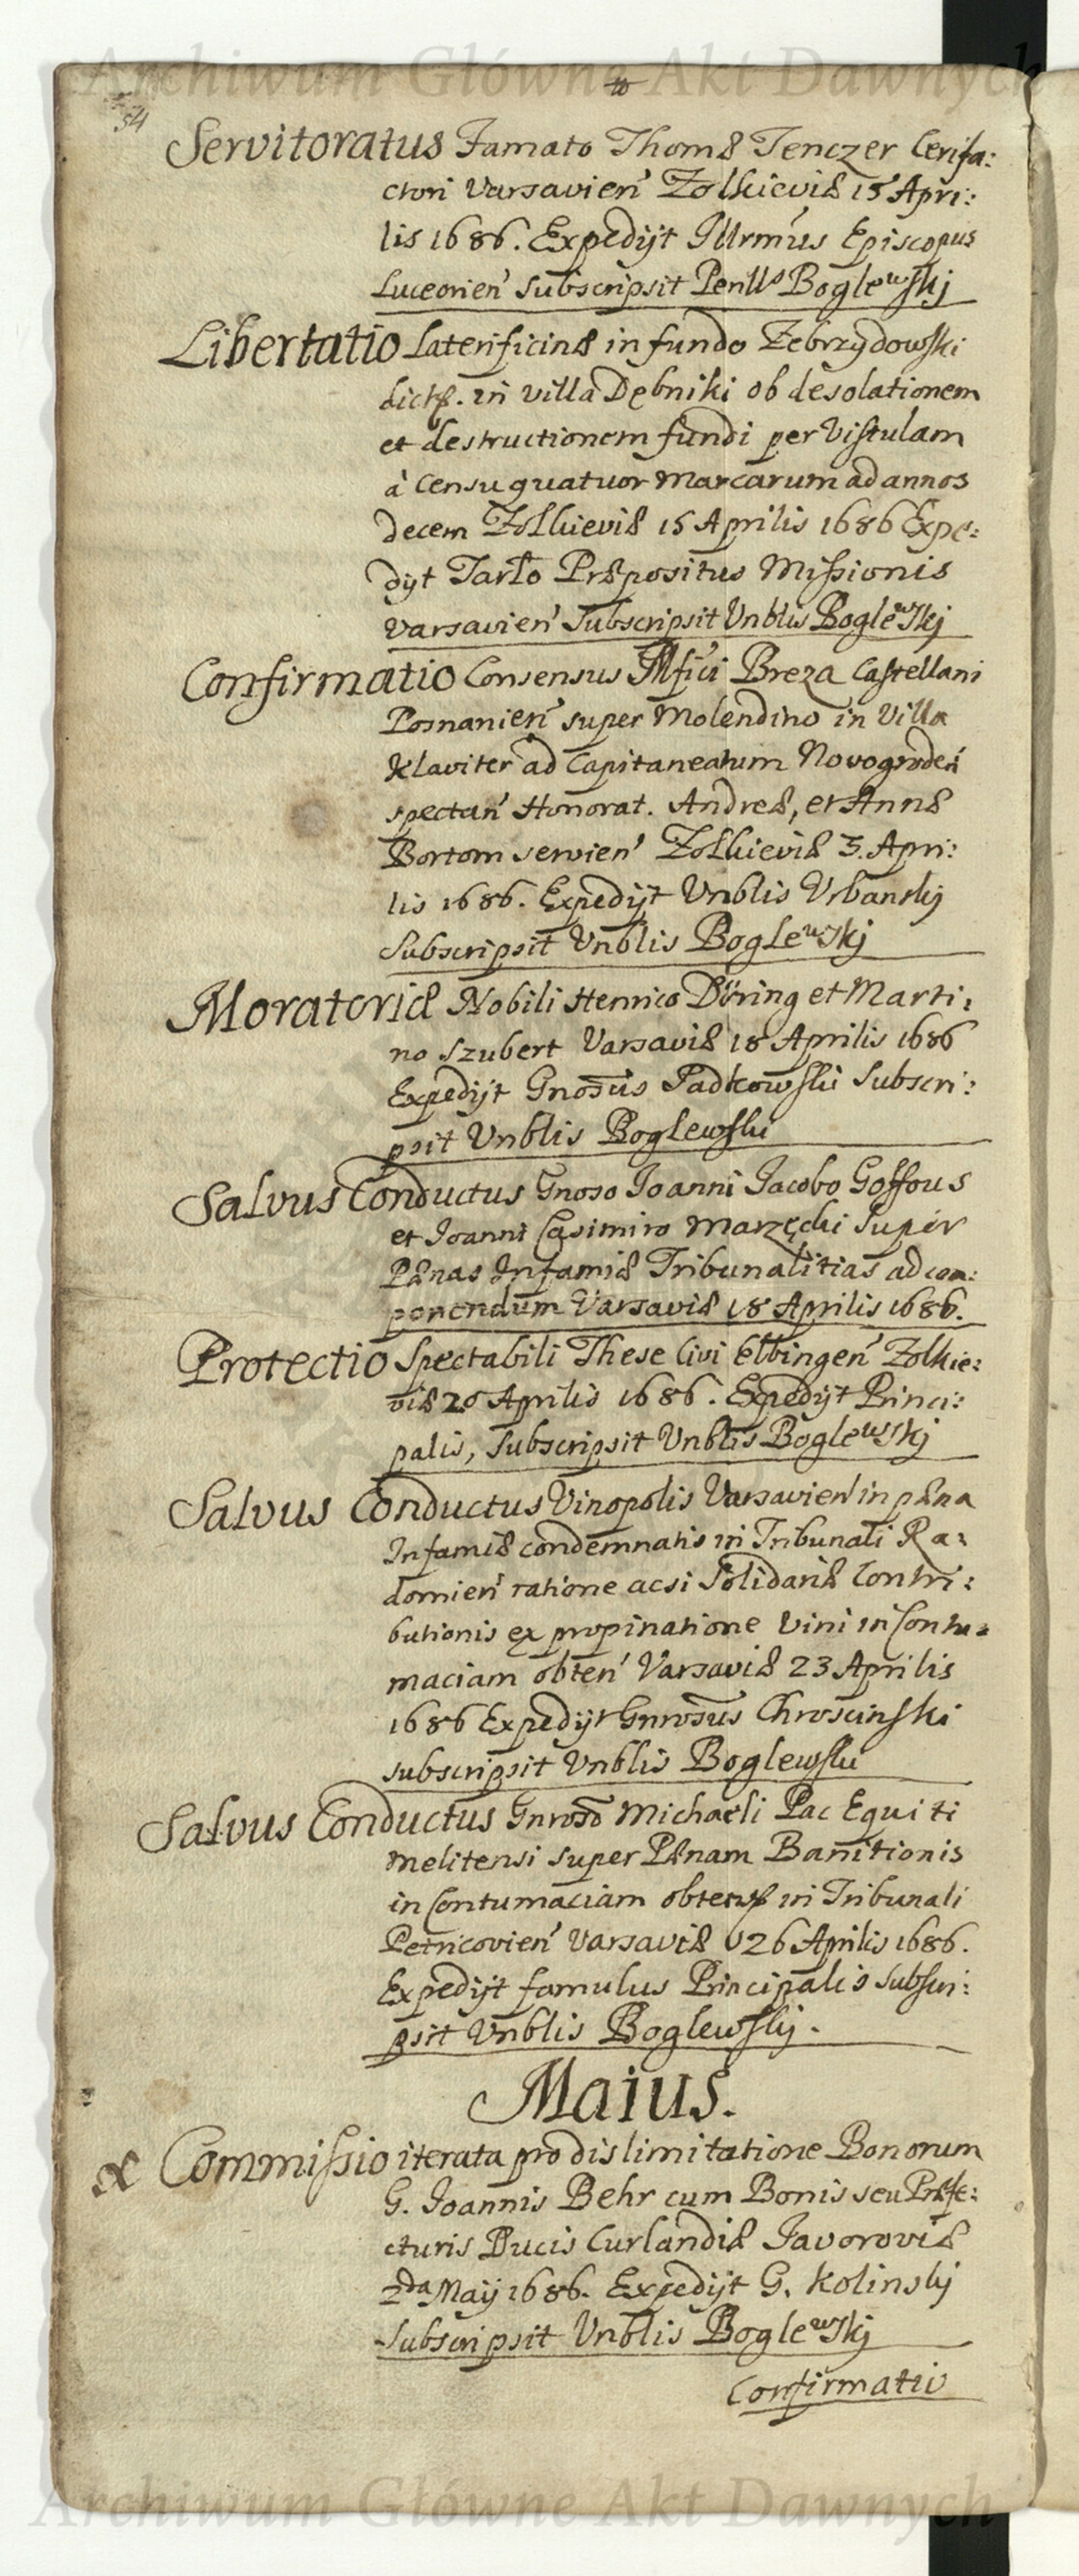 Archiwum Główne Akt Dawnych
54
Servitoratus Famato Thomæ Tenczer Cerifa:
ctori Varsavien Zolkieviæ 15 Apri:
lis 1686. Expedijt Illrmus Episcopus
Luceorien subscripsit Perills Boglewskj
Libertatio Laterificinæ in fundo Zebrzydowski
dict. in villa Dębniki ob desolationem
et destructionem fundi per Vistulam
à Censu quatuor Marcarum ad annos
decem Zolkieviæ 15 Aprilis 1686 Expe:
dijt Tarło Præpositus Missionis
Varsavien Subscripsit Vnblis Boglewskj
Confirmatio Consensus Mfici Breza Castellani
Posnanien super Molendino in Villa
Klaviter ad Capitaneatum Novogroden
spectan Honorat. Andreæ, et Annæ
Bortom servien Zolkieviæ 3. Apri:
lis 1686. Expedijt Vnblis Vrbanskj
Subscripsit Vnblis Boglewskj
Moratoriæ Nobili Henrico Döring et Marti:
no Szubert Varsaviæ 18 Aprilis 1686
Expedijt Gnosus Padkowski Subscri:
psit Vnblis Boglewski
Salvus Conductus Gnoso Joanni Jacobo Goffous
et Joanni Casimiro Marzęcki super
Pænas Infamiæ Tribunalitias ad com:
ponendum Varsaviæ 18 Aprilis 1686.
Protectio Spectabili These Civi Elbingen Zolkie:
viæ 20 Aprilis 1686. Expedijt Princi:
palis, Subscripsit Vnblis Boglewskj
Salvus Conductus Vinopolis Varsavien in pæna
Infamiæ condemnatis in Tribunali Ra:
domien ratione acsi Solidariæ Contri:
butionis ex propinatione Vini in Contu:
maciam obten Varsaviæ 23 Aprilis
1686 Expedijt Gnrosus Chroscinski
subscripsit Vnblis Boglewski
Salvus Conductus Gnroso Michaeli Pac Equiti
Melitensi super Pænam Banitionis
in Contumaciam obten in Tribunali
Petricovien Varsaviæ 26 Aprilis 1686.
Expedijt famulus Principalis subscri:
psit Vnblis Boglewskj.
Maius.
Commissio iterata pro dislimitatione Bonorum
G. Joannis Behr cum Bonis seu Præfe:
cturis Ducis Curlandiæ Javoroviæ
2da Maij 1686. Expedijt G. Kolinskj
Subscripsit Vnblis Boglewskj
Confirmatio
Archiwum Główne Akt Dawnych